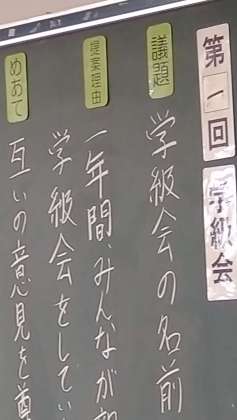 第一回 学級会
議題
学級会の名前
提案理由
一年間、みんなが
学級会をしてい
めあて
互いの意見を尊